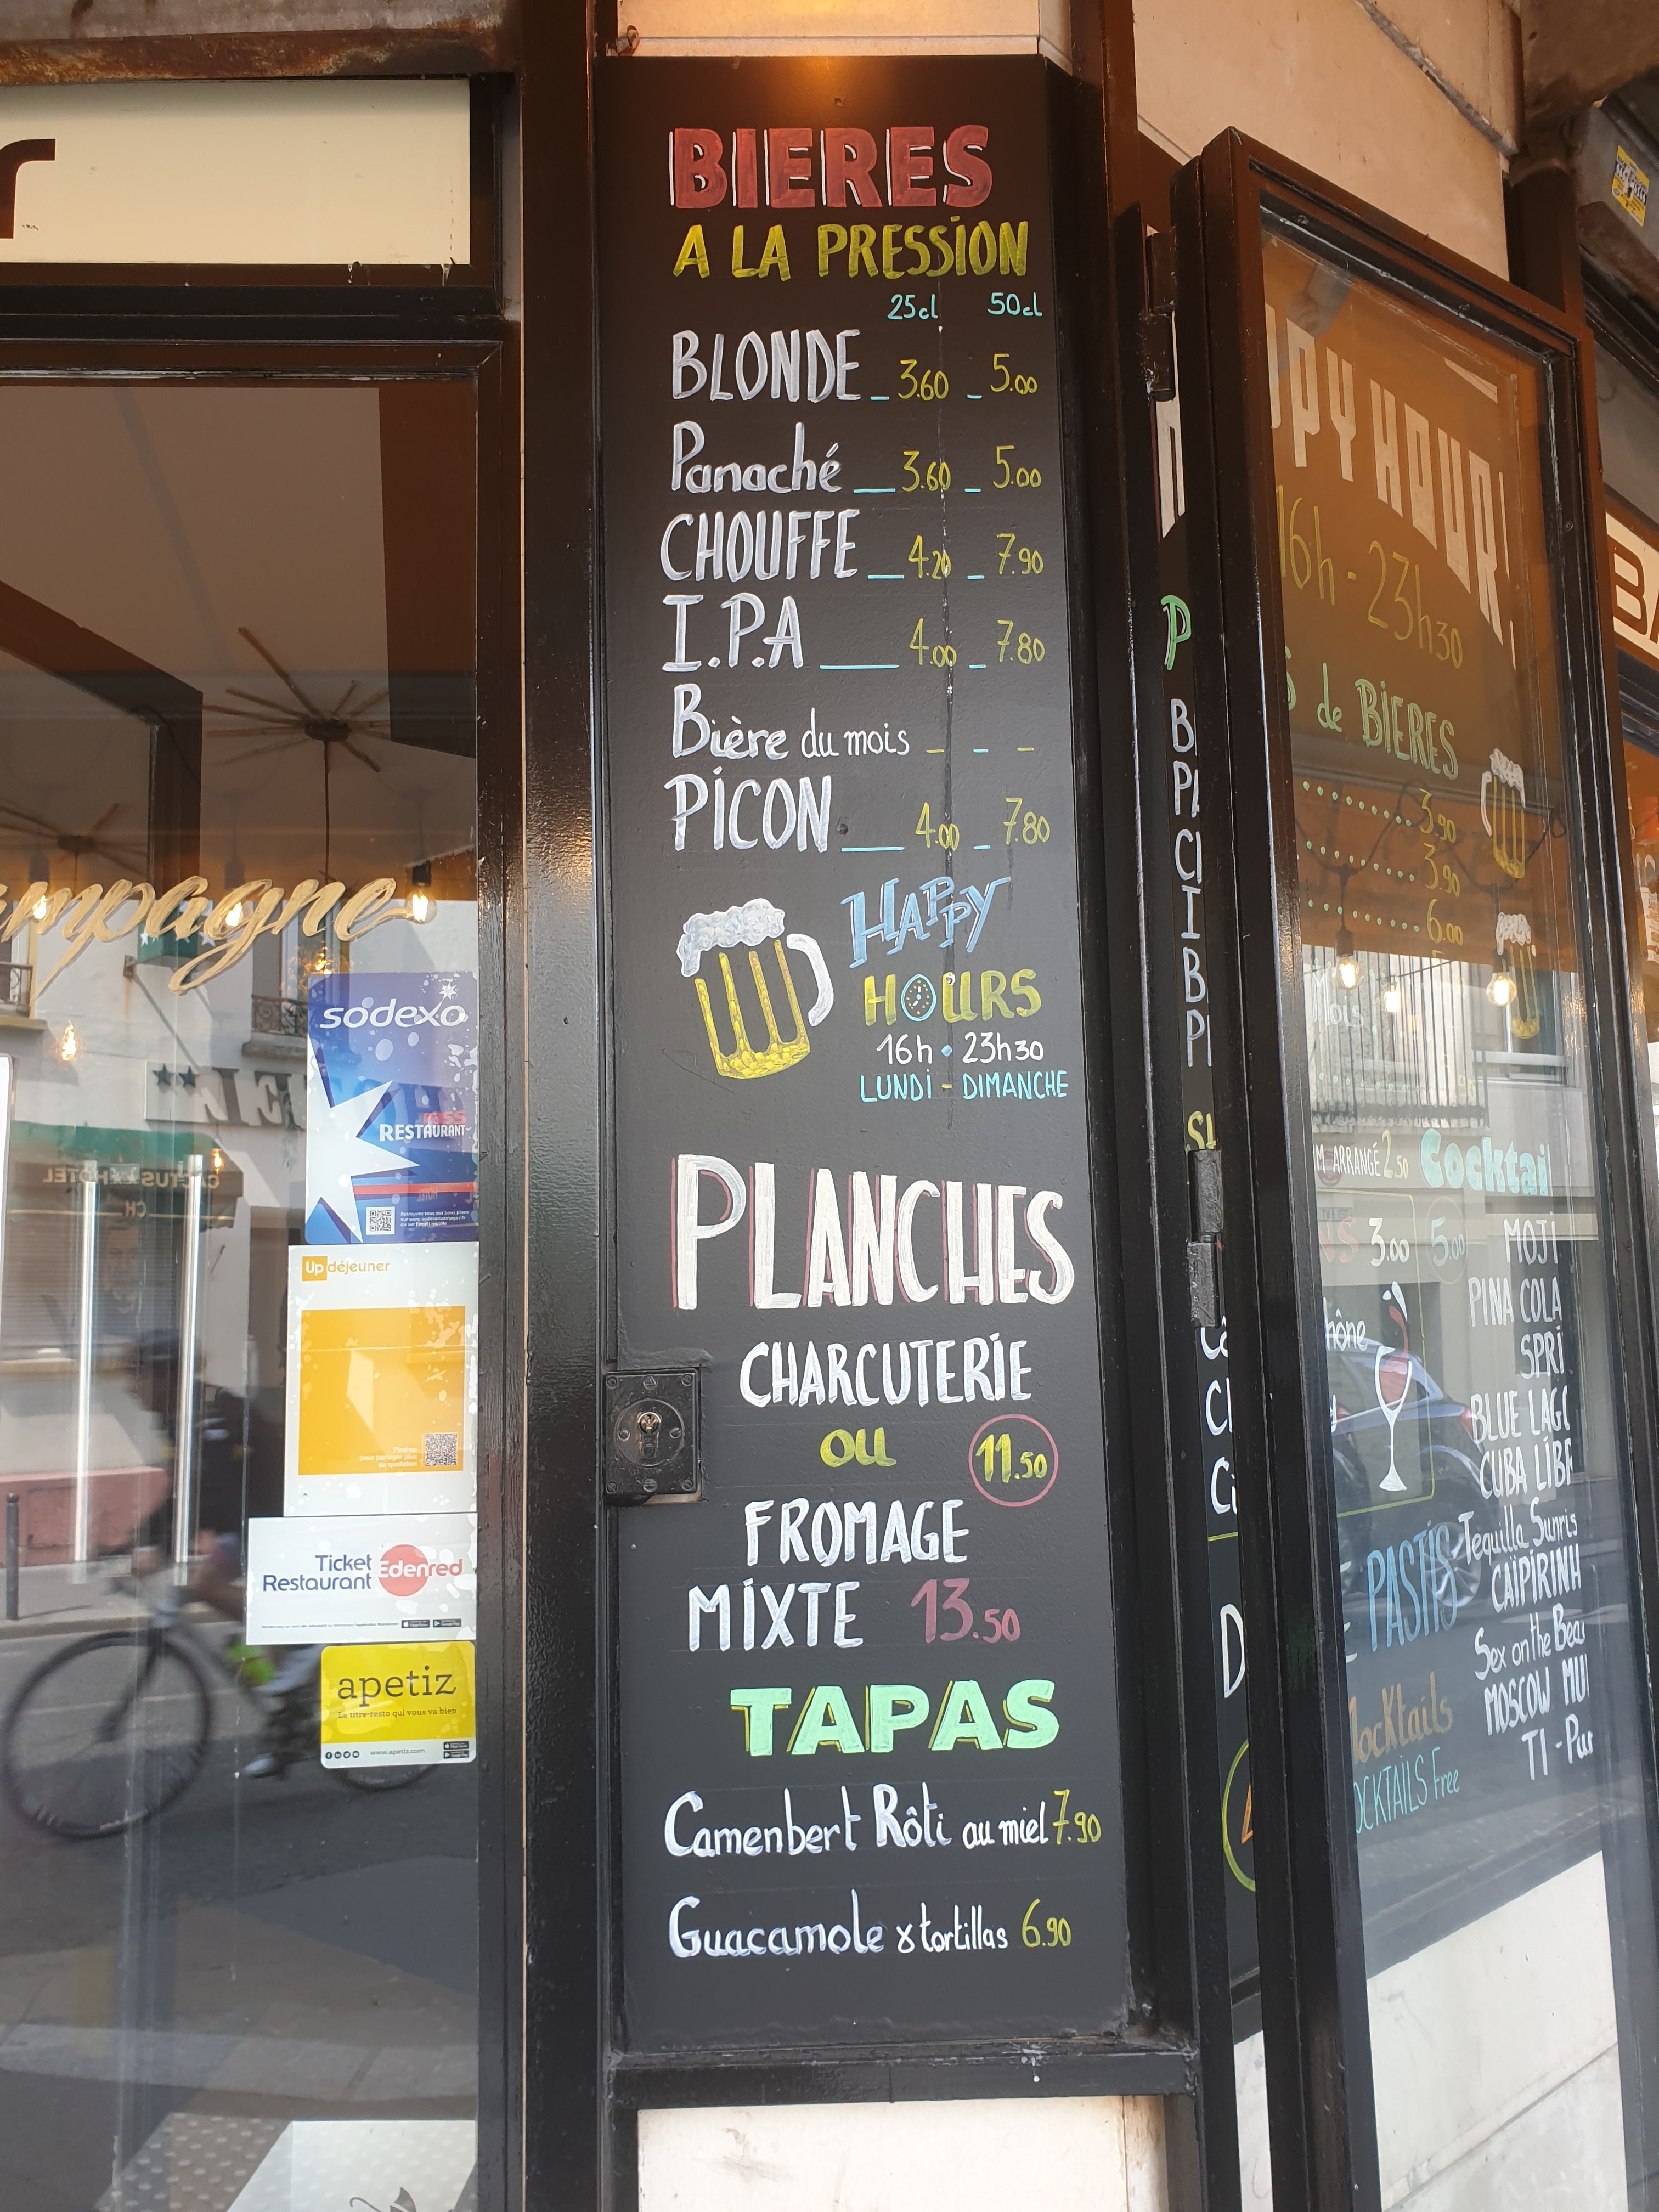 BIERES
A LA PRESSION
25cl 50cl
BLONDE _ 3.60 _ 5.00
Panaché _ 3.60 _ 5.00
CHOUFFE _ 4.20 _ 7.90
I.P.A _ 4.00 _ 7.80
Bière du mois - - -
PICON _ 4.00 _ 7.80
HAPPY
HOURS
16h • 23h30
LUNDI - DIMANCHE
PLANCHES
CHARCUTERIE
OU 11.50
FROMAGE
MIXTE 13.50
TAPAS
Camenbert Rôti au miel 7.90
Guacamole & tortillas 6.90
mpagne
sodexo
pass
RESTAURANT
Up déjeuner
Ticket
Restaurant Edenred
apetiz
Le titre-resto qui vous va bien
www.apetiz.com
PPY HOUR
16h - 23h30
de BIERES
3.90
3.90
6.00
Mois
M ARRANGÉ 2.50
3.00 5.00
hône
PASTIS
Mocktails
OCKTAILS Free
Cocktai
MOJI
PINA COLA
SPRI
BLUE LAG
CUBA LIB
Tequilla Sunris
CAÏPIRINH
Sex on the Bea
MOSCOW MU
TI - Pun
BA